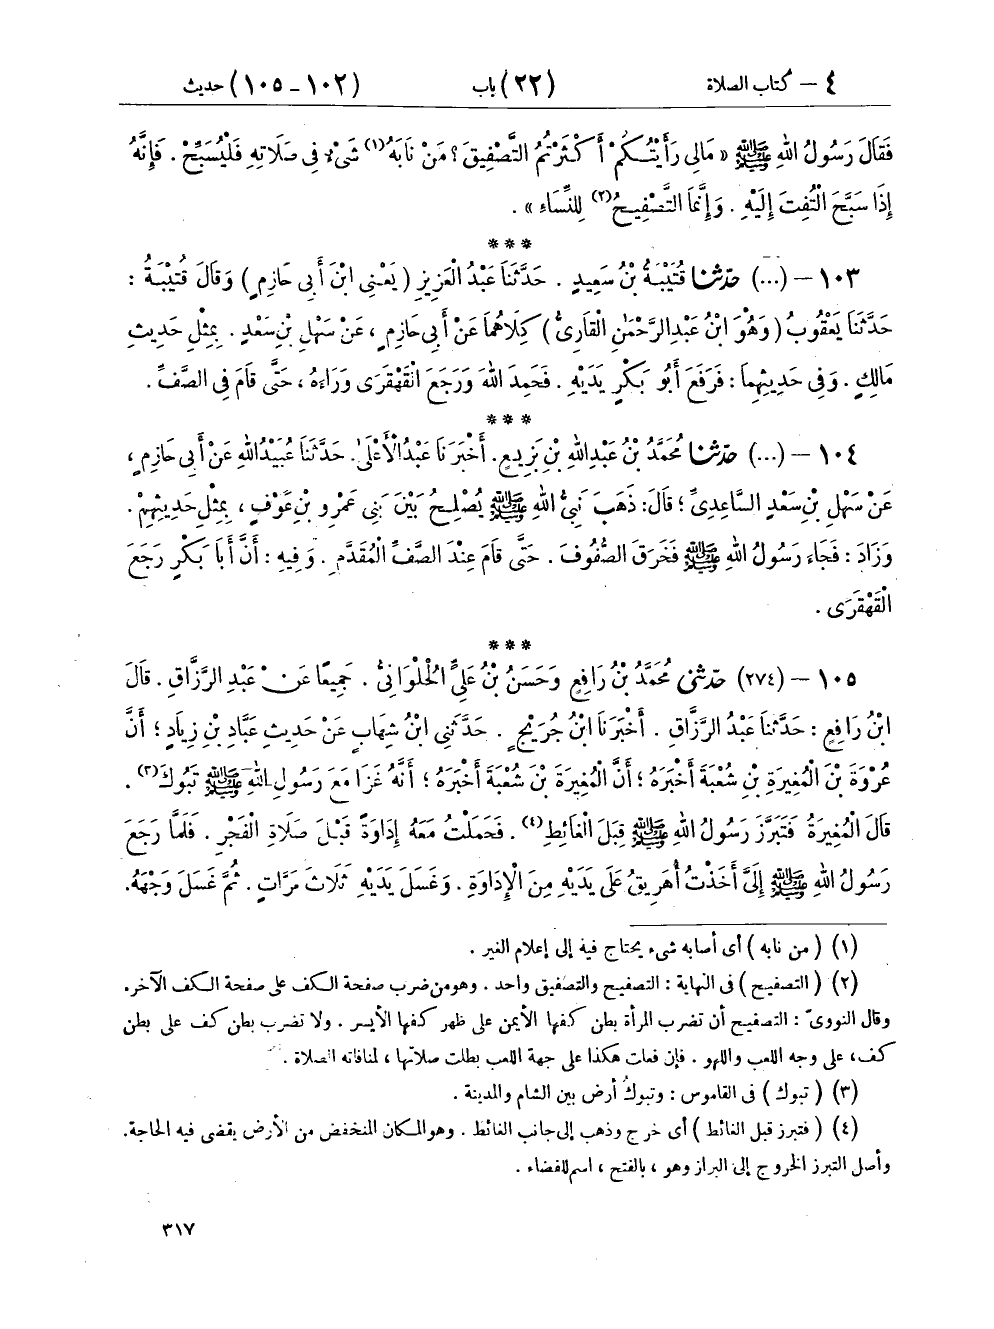 ٤ – كتاب الصلاة (٢٢) باب (١٠٢ – ١٠٥) حديث
فَقَالَ رَسُولُ اللهِ ﷺ « مَالِى رَأَيْتُكُمْ أَكْثَرْتُمُ التَّصْفِيقَ ؟ مَنْ نَابَهُ(١) شَىْءٌ فِى صَلَاتِهِ فَلْيُسَبِّحْ . فَإِنَّهُ
إِذَا سَبَّحَ الْتُفِتَ إِلَيْهِ . وَإِنَّمَا التَّصْفِيحُ(٢) لِلنِّسَاءِ » .
***
١٠٣ – (...) حدّثنا قُتَيْبَةُ بْنُ سَعِيدٍ . حَدَّثَنَا عَبْدُ الْعَزِيزِ ( يَعْنِى ابْنَ أَبِى حَازِمٍ ) وَقَالَ قُتَيْبَةُ :
حَدَّثَنَا يَعْقُوبُ ( وَهُوَ ابْنُ عَبْدِ الرَّحْمَٰنِ الْقَارِىُّ ) كِلَاهُمَا عَنْ أَبِى حَازِمٍ ، عَنْ سَهْلِ بْنِ سَعْدٍ . بِمِثْلِ حَدِيثِ
مَالِكٍ . وَفِى حَدِيثِهِمَا : فَرَفَعَ أَبُو بَكْرٍ يَدَيْهِ . فَحَمِدَ اللهَ وَرَجَعَ الْقَهْقَرَى وَرَاءَهُ ، حَتَّى قَامَ فِى الصَّفِّ .
***
١٠٤ – (...) حدّثنا مُحَمَّدُ بْنُ عَبْدِ اللهِ بْنِ بَزِيعٍ . أَخْبَرَنَا عَبْدُ الْأَعْلَىٰ . حَدَّثَنَا عُبَيْدُ اللهِ عَنْ أَبِى حَازِمٍ ،
عَنْ سَهْلِ بْنِ سَعْدٍ السَّاعِدِىِّ ؛ قَالَ : ذَهَبَ نَبِىُّ اللهِ ﷺ يُصْلِحُ بَيْنَ بَنِى عَمْرِو بْنِ عَوْفٍ ، بِمِثْلِ حَدِيثِهِمْ .
وَزَادَ : فَجَاءَ رَسُولُ اللهِ ﷺ فَخَرَقَ الصُّفُوفَ . حَتَّى قَامَ عِنْدَ الصَّفِّ الْمُقَدَّمِ . وَفِيهِ : أَنَّ أَبَا بَكْرٍ رَجَعَ
الْقَهْقَرَى .
***
١٠٥ – (٢٧٤) حدّثنى مُحَمَّدُ بْنُ رَافِعٍ وَحَسَنُ بْنُ عَلِىٍّ الْحُلْوَانِىُّ . جَمِيعًا عَنْ عَبْدِ الرَّزَّاقِ . قَالَ
ابْنُ رَافِعٍ : حَدَّثَنَا عَبْدُ الرَّزَّاقِ . أَخْبَرَنَا ابْنُ جُرَيْجٍ . حَدَّثَنِى ابْنُ شِهَابٍ عَنْ حَدِيثِ عَبَّادِ بْنِ زِيَادٍ ؛ أَنَّ
عُرْوَةَ بْنَ الْمُغِيرَةِ بْنِ شُعْبَةَ أَخْبَرَهُ ؛ أَنَّ الْمُغِيرَةَ بْنَ شُعْبَةَ أَخْبَرَهُ ؛ أَنَّهُ غَزَا مَعَ رَسُولِ اللهِ ﷺ تَبُوكَ(٣) .
قَالَ الْمُغِيرَةُ فَتَبَرَّزَ رَسُولُ اللهِ ﷺ قِبَلَ الْغَائِطِ(٤) . فَحَمَلْتُ مَعَهُ إِدَاوَةً قَبْلَ صَلَاةِ الْفَجْرِ . فَلَمَّا رَجَعَ
رَسُولُ اللهِ ﷺ إِلَىَّ أَخَذْتُ أُهَرِيقُ عَلَى يَدَيْهِ مِنَ الْإِدَاوَةِ . وَغَسَلَ يَدَيْهِ ثَلَاثَ مَرَّاتٍ . ثُمَّ غَسَلَ وَجْهَهُ .
(١) ( من نابه ) أى أصابه شىء يحتاج فيه إلى إعلام الغير .
(٢) ( التصفيح ) فى النهاية : التصفيح والتصفيق واحد . وهو من ضرب صفحة الكف على صفحة الكف الآخر .
وقال النووىّ : التصفيح أن تضرب المرأة بطن كفها الأيمن على ظهر كفها الأيسر . ولا تضرب بطن كف على بطن
كف ، على وجه اللعب واللهو . فإن فعلت هكذا على جهة اللعب بطلت صلاتها ، لمنافاته الصلاة .
(٣) ( تبوك ) فى القاموس : وتبوكُ أرض بين الشام والمدينة .
(٤) ( فتبرز قبل الغائط ) أى خرج وذهب إلى جانب الغائط . وهو المكان المنخفض من الأرض يقضى فيه الحاجة .
وأصل التبرز الخروج إلى البراز وهو ، بالفتح ، اسم للفضاء .
٣١٧